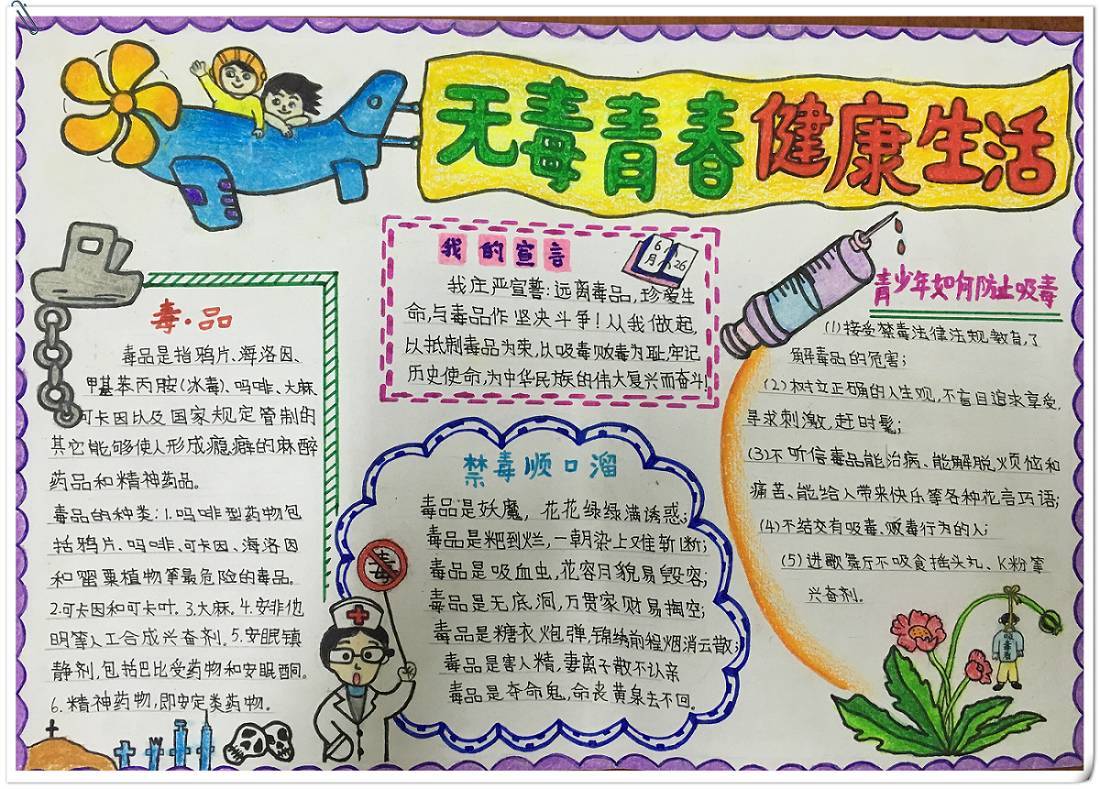 无毒青春健康生活
毒·品
毒品是指鸦片、海洛因、
甲基苯丙胺(冰毒)、吗啡、大麻、
可卡因以及国家规定管制的
其它能够使人形成瘾癖的麻醉
药品和精神药品。
毒品的种类:1.吗啡型药物包
括鸦片、吗啡、可卡因、海洛因
和罂粟植物等最危险的毒品。
2.可卡因和可卡叶.3.大麻.4.安非他
明等人工合成兴奋剂.5.安眠镇
静剂,包括巴比妥药物和安眠酮.
6.精神药物,即安定类药物。
我的宣言
6月26
我庄严宣誓:远离毒品,珍爱生
命,与毒品作坚决斗争!从我做起,
以抵制毒品为荣,以吸毒贩毒为耻,牢记
历史使命,为中华民族的伟大复兴而奋斗!
禁毒顺口溜
毒品是妖魔,花花绿绿满诱惑;
毒品是粑到烂,一朝染上难斩断;
毒品是吸血虫,花容月貌易毁容;
毒品是无底洞,万贯家财易掏空;
毒品是糖衣炮弹,锦绣前程烟消云散;
毒品是害人精,妻离子散不认亲
毒品是夺命鬼,命丧黄泉去不回。
毒
青少年如何防止吸毒
(1)接受禁毒法律法规教育,了
解毒品的危害;
(2)树立正确的人生观,不盲目追求享受,
寻求刺激,赶时髦;
(3)不听信毒品能治病、能解脱烦恼和
痛苦、能给人带来快乐等各种花言巧语;
(4)不结交有吸毒、贩毒行为的人;
(5)进歌舞厅不吸食摇头丸、K粉等
兴奋剂.